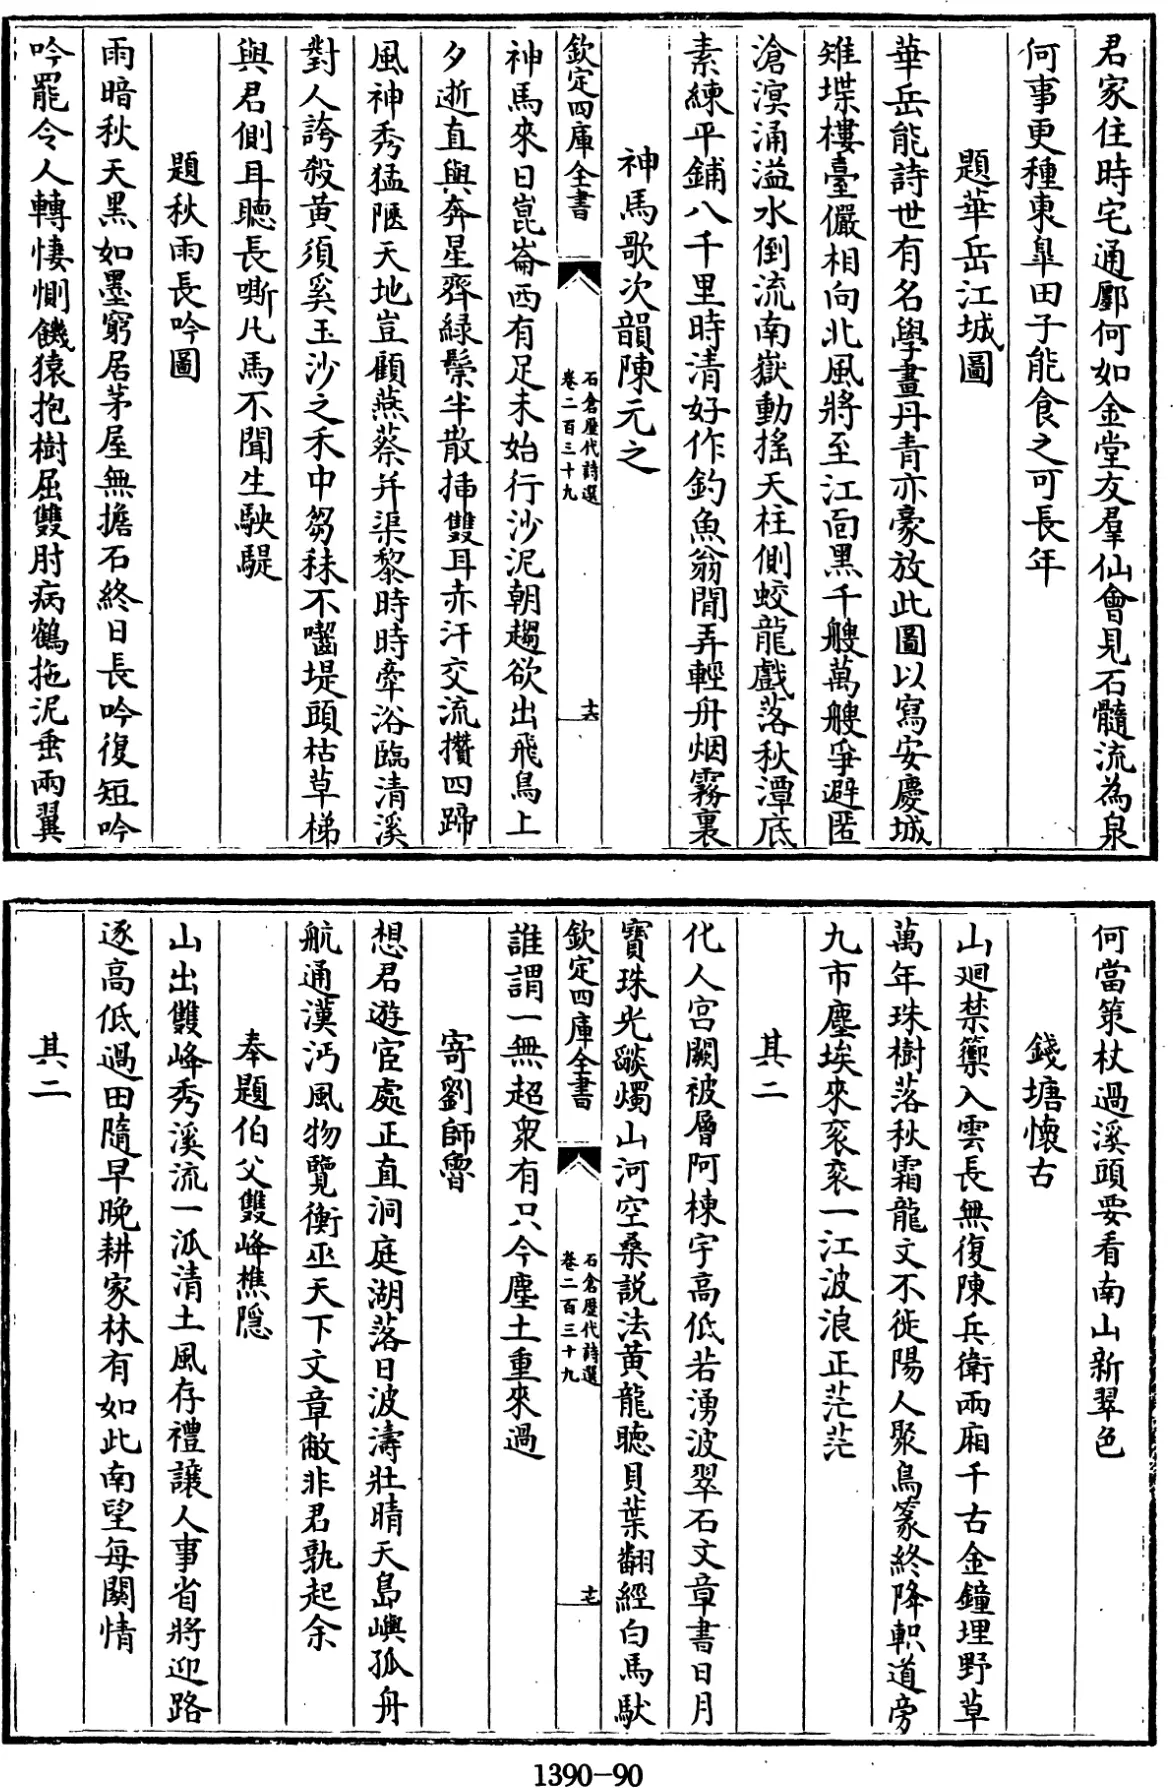 君家住時宅通酆何如金堂友羣仙會見石髓流為泉
何事更種東臯田子能食之可長年
題華岳江城圖
華岳能詩世有名學畫丹青亦豪放此圖以寫安慶城
雉堞樓臺儼相向北風將至江面黑千艘萬艘爭避匿
滄溟涌溢水倒流南嶽動搖天柱側蛟龍戲落秋潭底
素練平鋪八千里時清好作釣魚翁閒弄輕舟烟霧裏
神馬歌次韻陳元之
欽定四庫全書
石倉歷代詩選
卷二百三十九
十六
神馬來日崑崙西有足未始行沙泥朝趨欲出飛鳥上
夕逝直與奔星齊緑鬃半散揷雙耳赤汗交流攢四蹄
風神秀猛隘天地豈顧燕蔡并渠黎時時牽浴臨清溪
對人誇殺黄須奚玉沙之禾中芻秣不囓堤頭枯草梯
與君側耳聽長嘶凡馬不聞生駃騠
題秋雨長吟圖
雨暗秋天黑如墨窮居茅屋無擔石終日長吟復短吟
吟罷令人轉悽惻饑猿抱樹屈雙肘病鶴拖泥垂兩翼
何當策杖過溪頭要看南山新翠色
錢塘懷古
山廻禁籞入雲長無復陳兵衛兩廂千古金鐘埋野草
萬年珠樹落秋霜龍文不徙陽人聚鳥篆終降軹道旁
九市塵埃來衮衮一江波浪正茫茫
其二
化人宫闕被層阿棟宇高低若湧波翠石文章書日月
寶珠光燄燭山河空桑説法黄龍聽貝葉翻經白馬馱
欽定四庫全書
石倉歷代詩選
卷二百三十九
十七
誰謂一無超衆有只今塵土重來過
寄劉師魯
想君遊宦處正直洞庭湖落日波濤壯晴天島嶼孤舟
航通漢沔風物覽衡巫天下文章敝非君孰起余
奉題伯父雙峰樵隱
山出雙峰秀溪流一派清土風存禮讓人事省將迎路
逐高低過田隨早晚耕家林有如此南望每關情
其二
1390-90